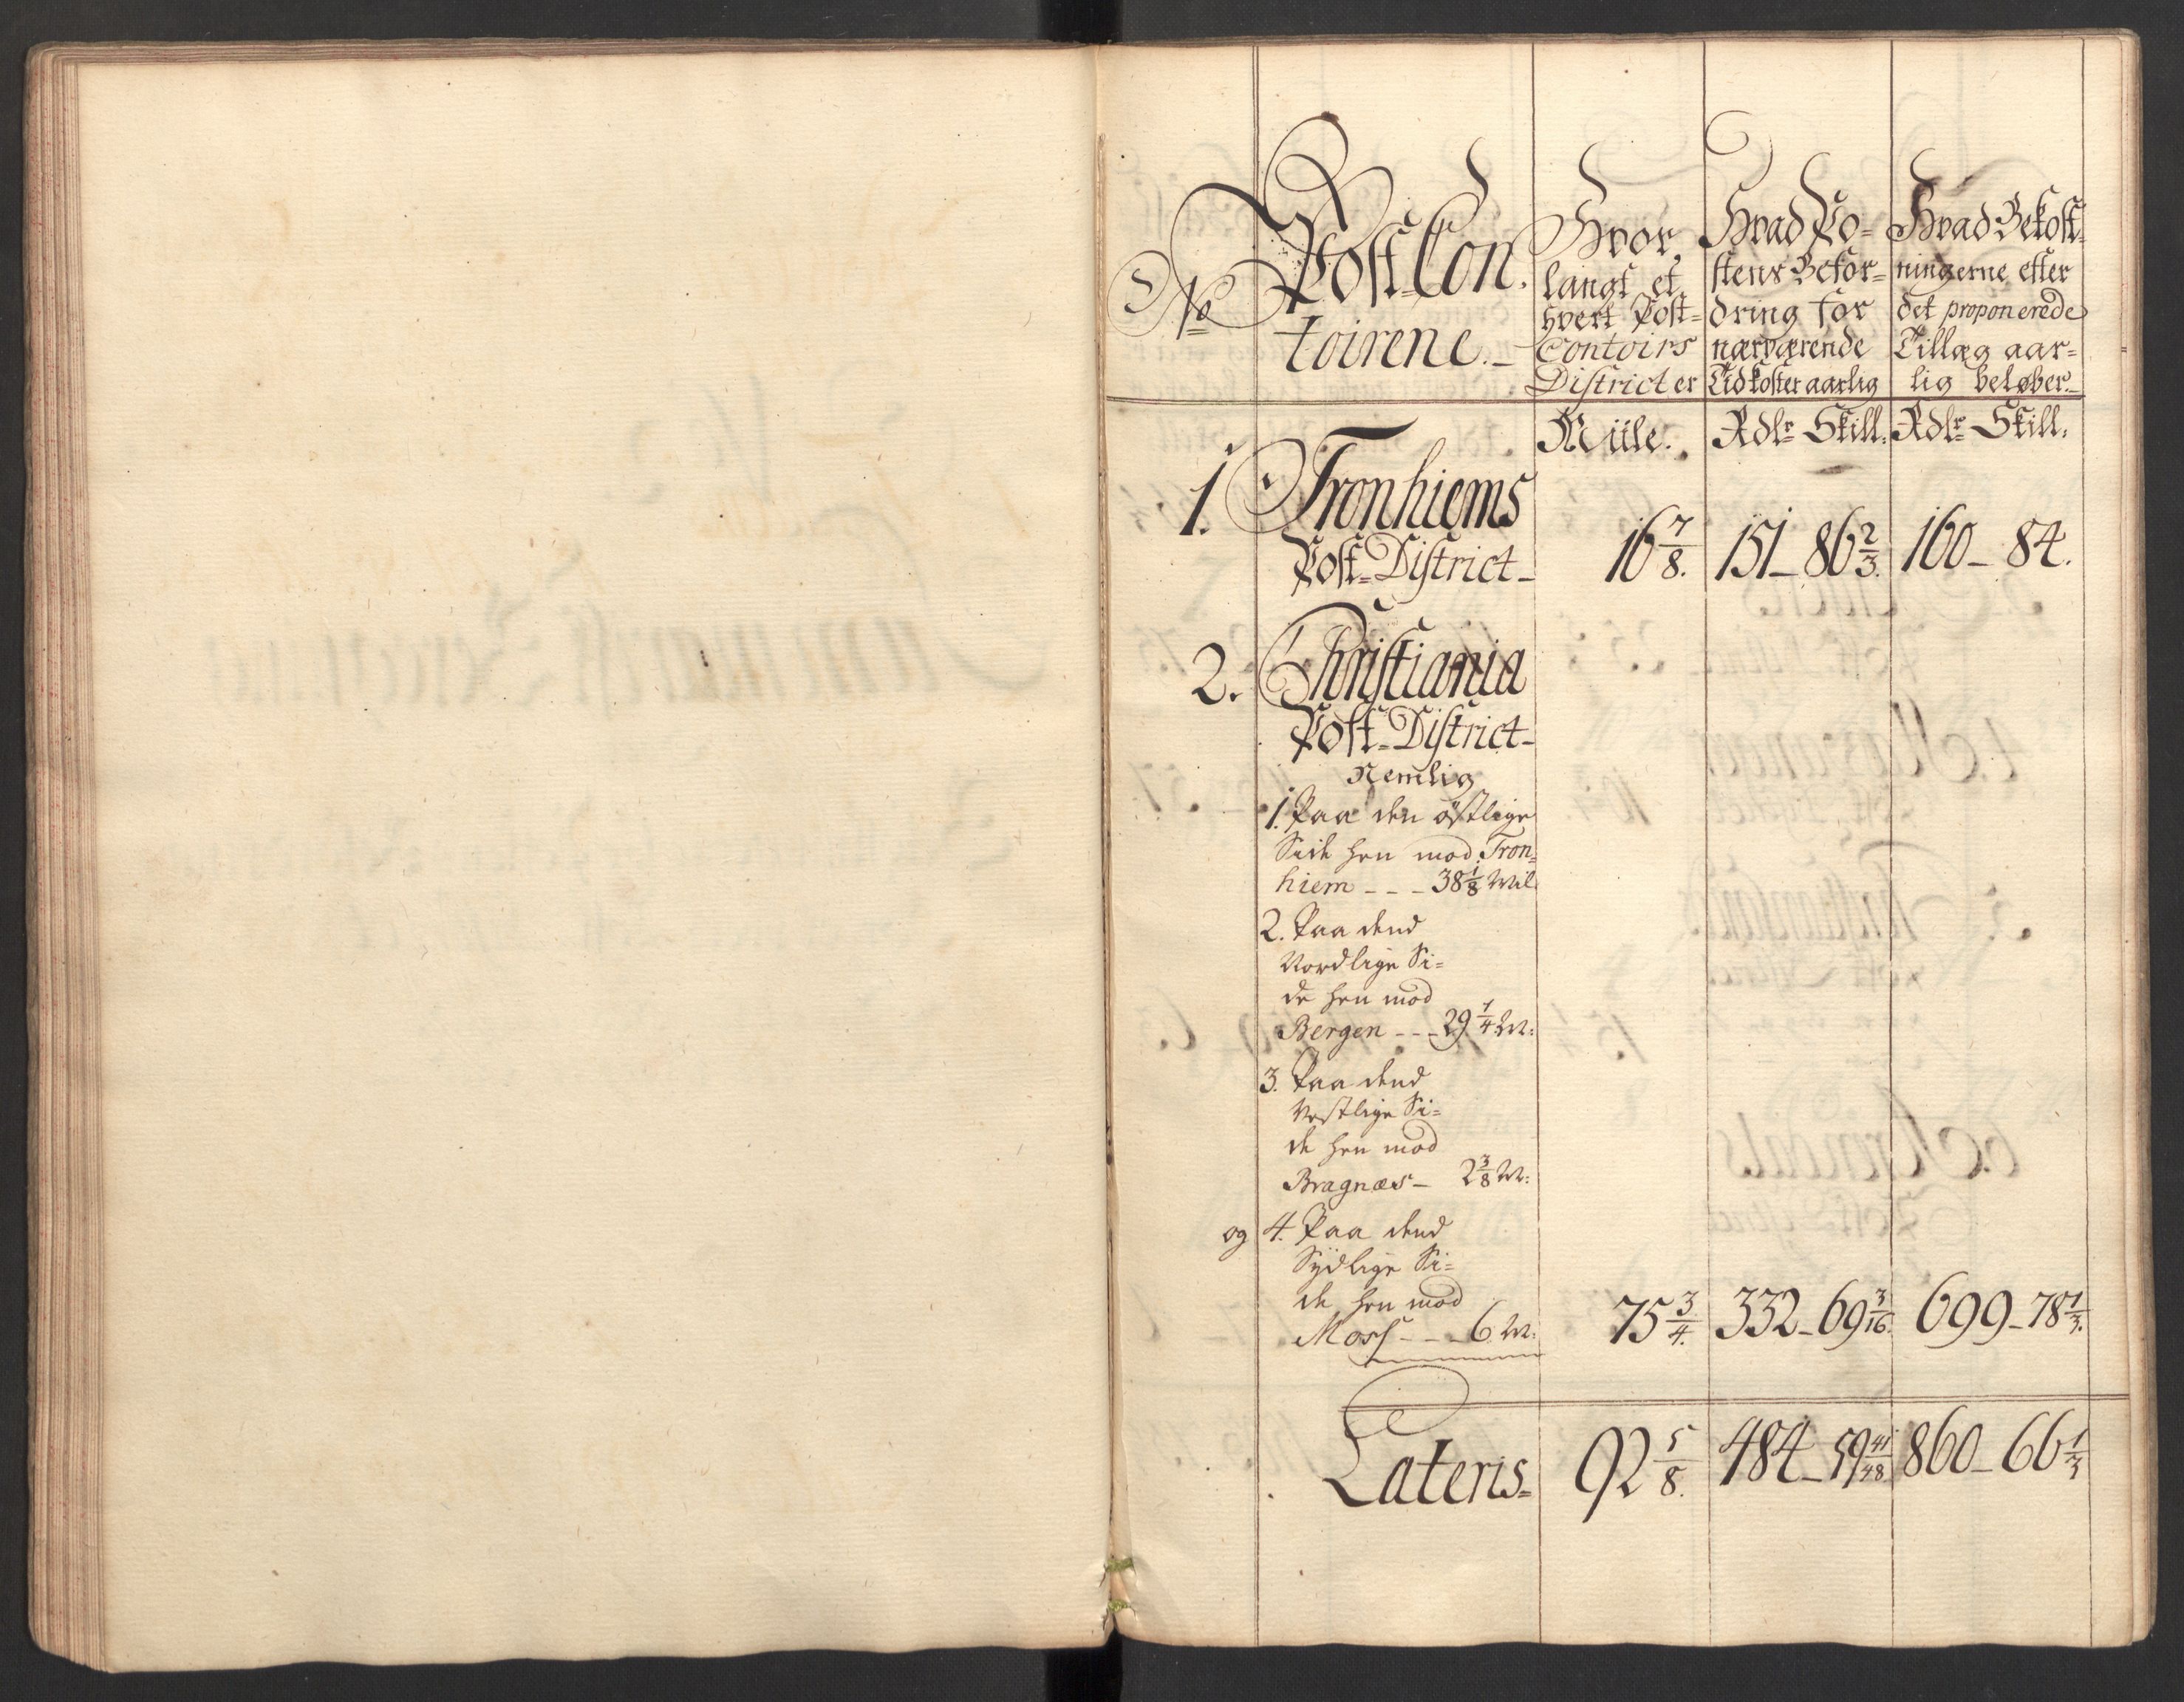 No
Post-Con-
toirene.
Hvor
langt et
hvert Post-
Contoirs
District er
Hvad Po-
stens Befor-
dring for
nærværende
Tid koster aarlig
Hvad Bekost-
ningerne efter
det proponerede
Tillæg aar-
lig beløber.
Miile.
Rdlr Skill.
Rdlr Skill.
1. Tronhiems
Post-District- 16 7/8. 151_86 2/3. 160_84.
2. Christiania
Post-District-
Nemlig
1. Paa den østlige
Side hen mod Tron-
hiem - - - 38 1/8 Mil
2. Paa dend
Nordlige Si-
de hen mod
Bergen - - - 29 1/4 M:
3. Paa dend
Vestlige Si-
de hen mod
Bragnæs - 2 3/8 M:
og 4. Paa dend
Sydlige Si-
de hen mod
Moss - - - 6 M: 75 3/4. 332_69 3/16. 699_78 1/3.
Lateris- 92 5/8. 484_59 41/48 860_66 1/3